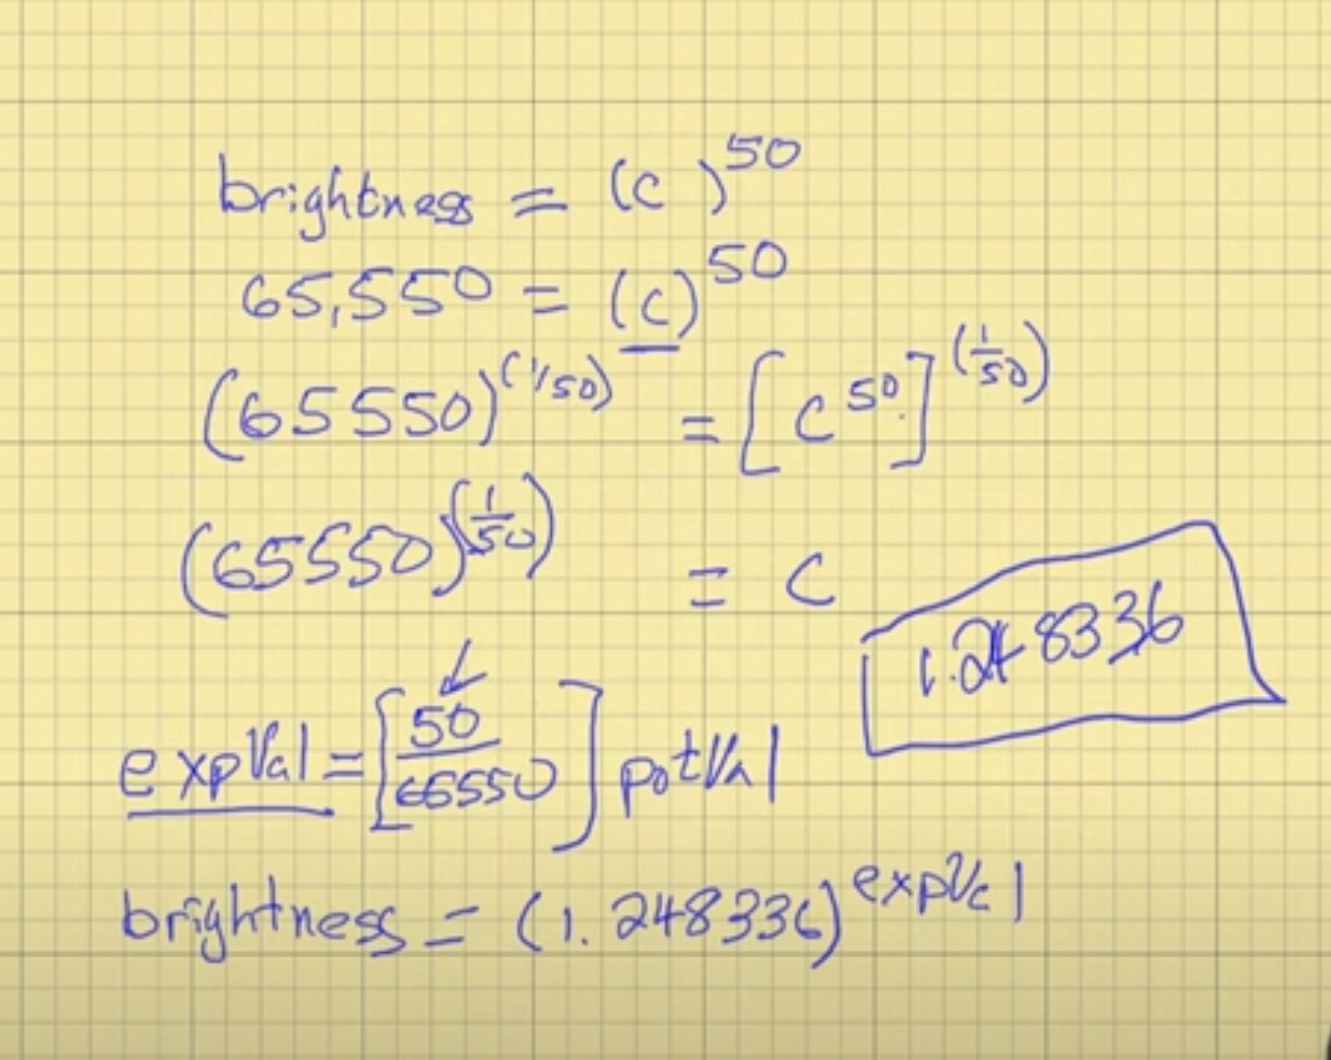 brightness = (c)^50
65,550 = (c)^50
(65550)^(1/50) = [c^50]^(1/50)
(65550)^(1/50) = c
1.248336
expVal = [50/65550] potVal
brightness = (1.248336)^expVal